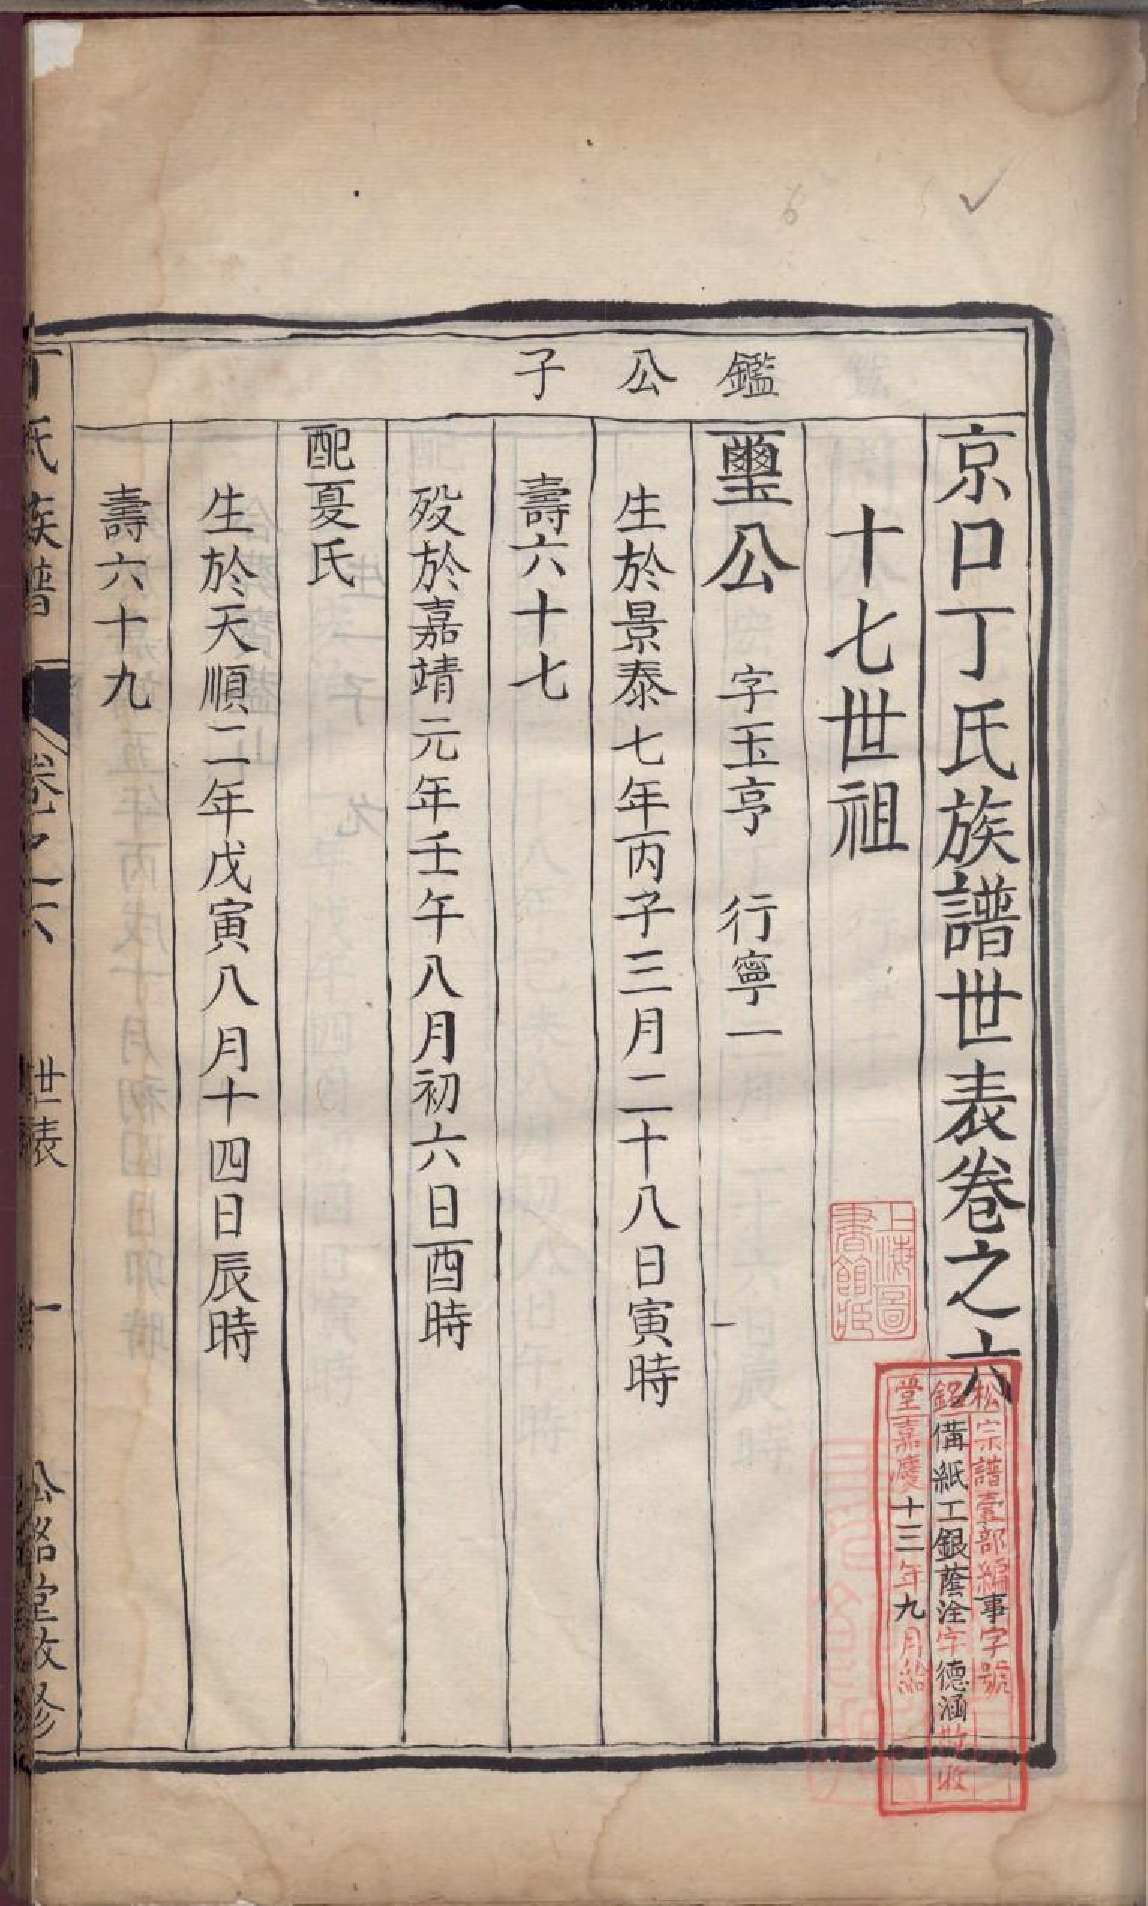 京口丁氏族譜世表卷之六
十七世祖
鑑公子
璽公 字玉亭 行寧一
生於景泰七年丙子三月二十八日寅時
壽六十七
歿於嘉靖元年壬午八月初六日酉時
配夏氏
生於天順二年戊寅八月十四日辰時
壽六十九
丁氏族譜 卷之六 世表 一 松銘堂改修
上海圖
書館藏
松宗譜壹部編事字號
銘備紙工銀蔭淦字德涵 收
堂嘉慶十三年九月給